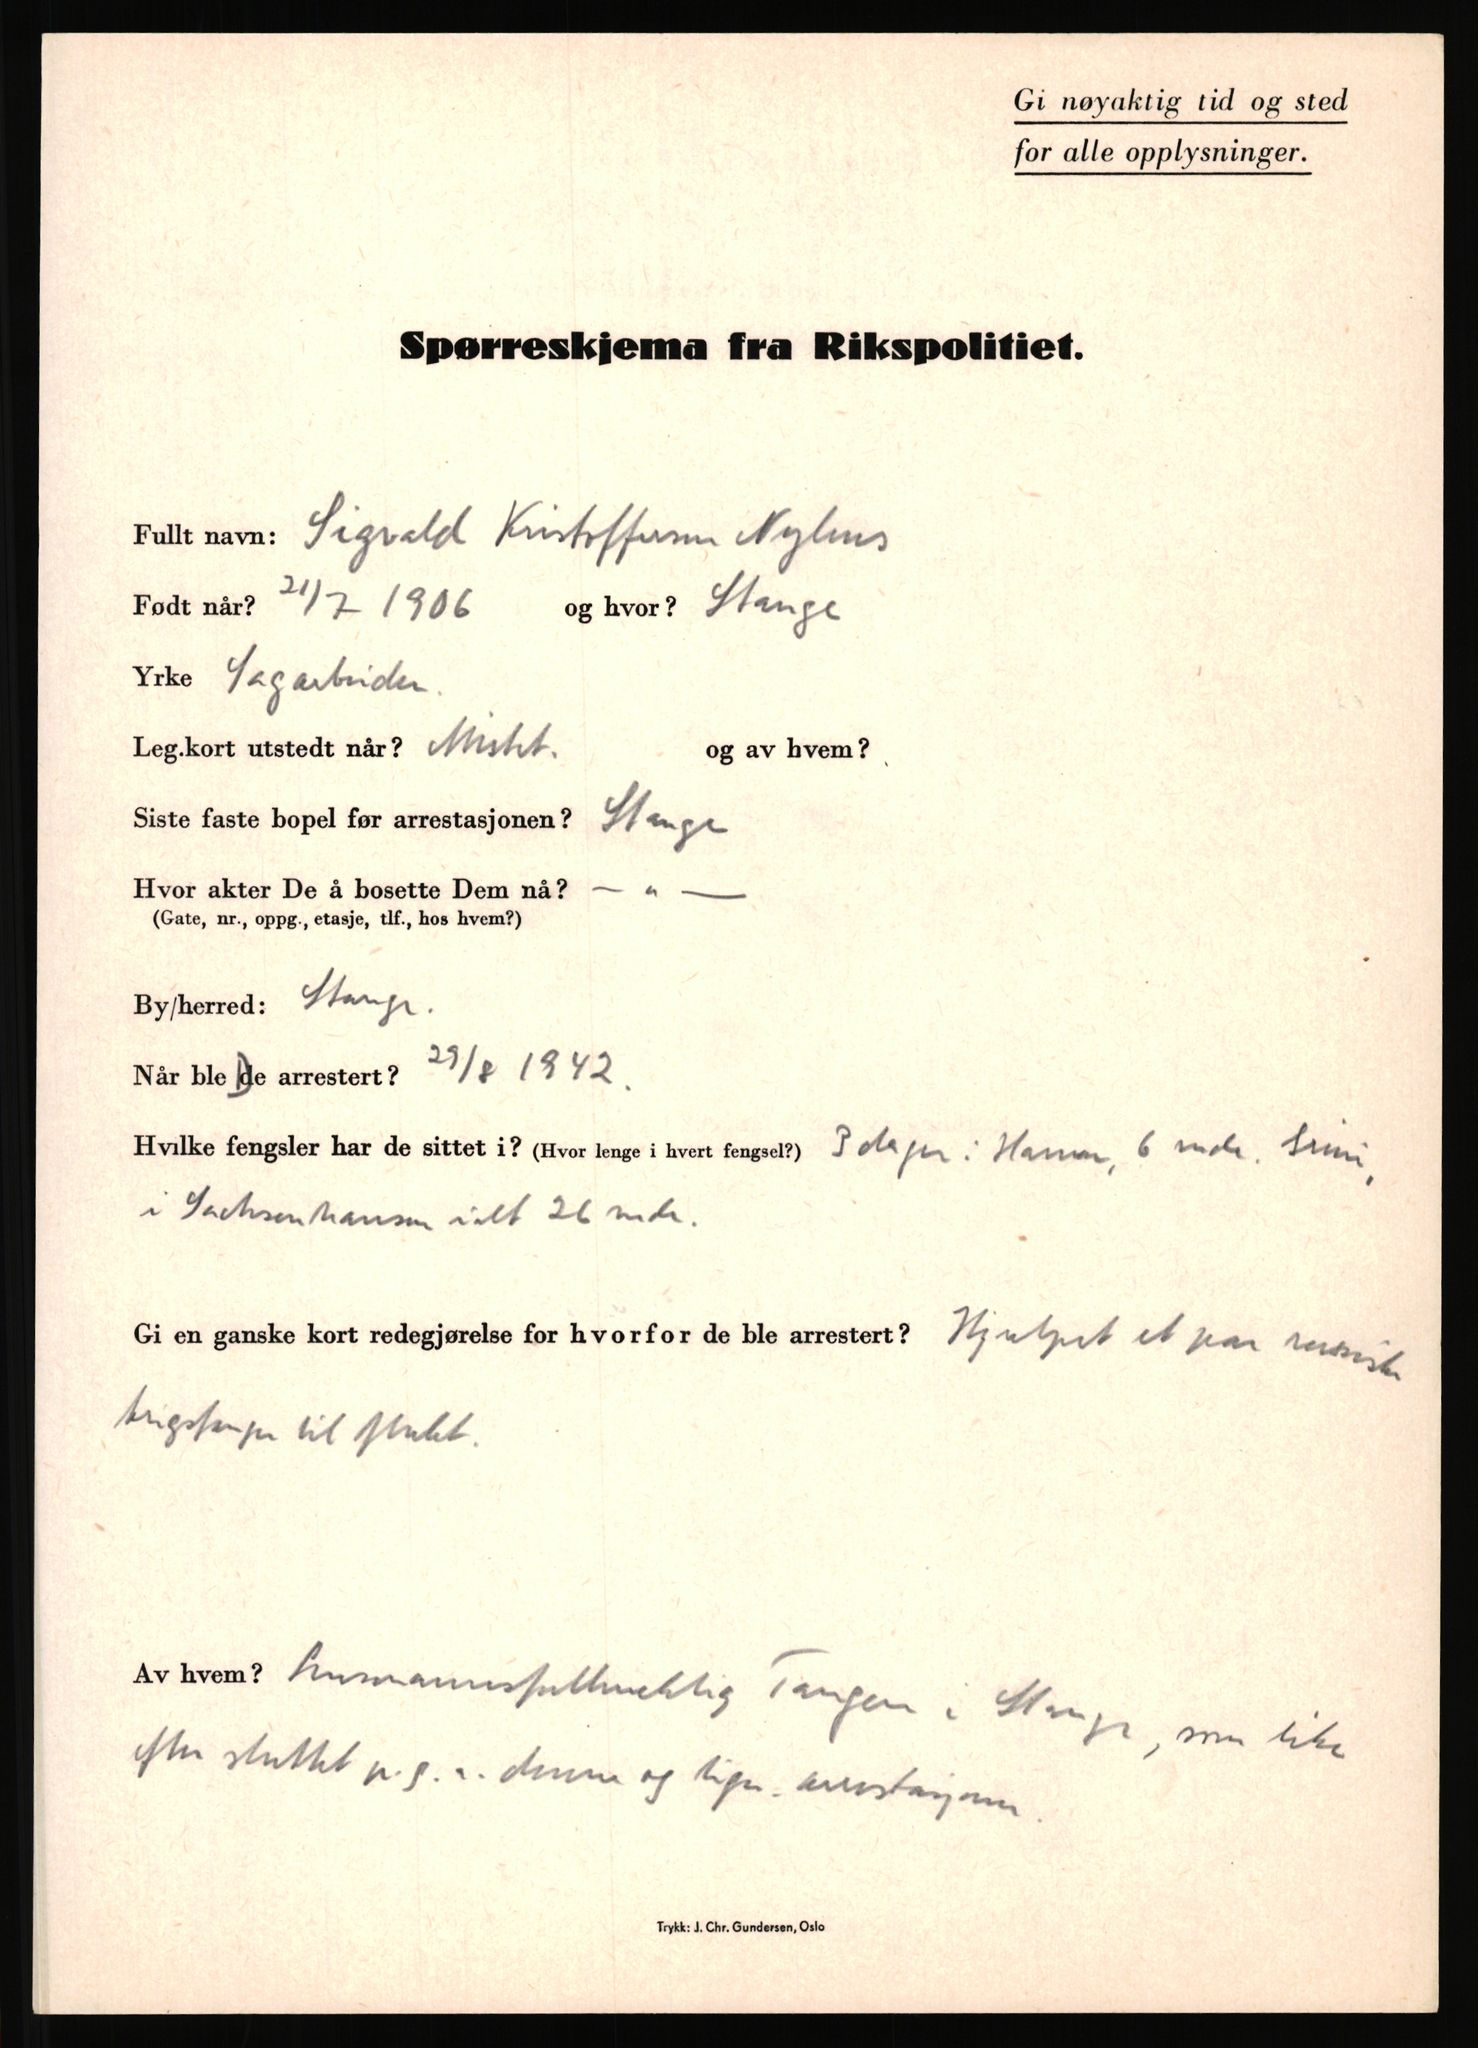 Gi nøyaktig tid og sted
for alle opplysninger.
Spørreskjema fra Rikspolitiet.
Fullt navn: Sigvald Kristoffersen Nylms
Født når? 21/7 1906 og hvor? Stange
Yrke Sagarbeider.
Leg.kort utstedt når? Mistet. og av hvem?
Siste faste bopel før arrestasjonen? Stange
Hvor akter De å bosette Dem nå? — " —
(Gate, nr., oppg., etasje, tlf., hos hvem?)
By/herred: Stange.
Når ble De arrestert? 29/8 1942.
Hvilke fengsler har de sittet i? (Hvor lenge i hvert fengsel?) 3 dager i Hamar, 6 mdr. Grini,
i Sachsenhausen ialt 26 mdr.
Gi en ganske kort redegjørelse for hvorfor de ble arrestert? Hjulpet et par russiske
krigsfanger til flukt.
Av hvem? Lensmannsfullmektig Tangen i Stange, som like
efter sluttet p.g.a. denne og lign. arrestasjoner.
Trykk: J. Chr. Gundersen, Oslo